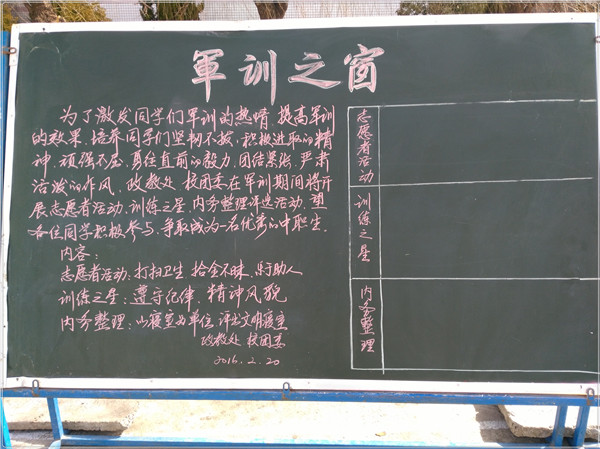 軍训之窗
为了激发同学们军训的热情,提高军训
的效果,培养同学们坚韧不拔、积极进取的精
神,顽强不屈、勇往直前的毅力,团结紧张、严肃
活泼的作风,政教处 校团委在军训期间将开
展志愿者活动、训练之星、内务整理评选活动,望
各位同学积极参与,争取成为一名优秀的中职生。
内容:
志愿者活动:打扫卫生 拾金不昧、乐于助人
训练之星:遵守纪律、精神风貌
内务整理:以寝室为单位 评出文明寝室
政教处 校团委
2016.2.20
志愿者活动
训练之星
内务整理